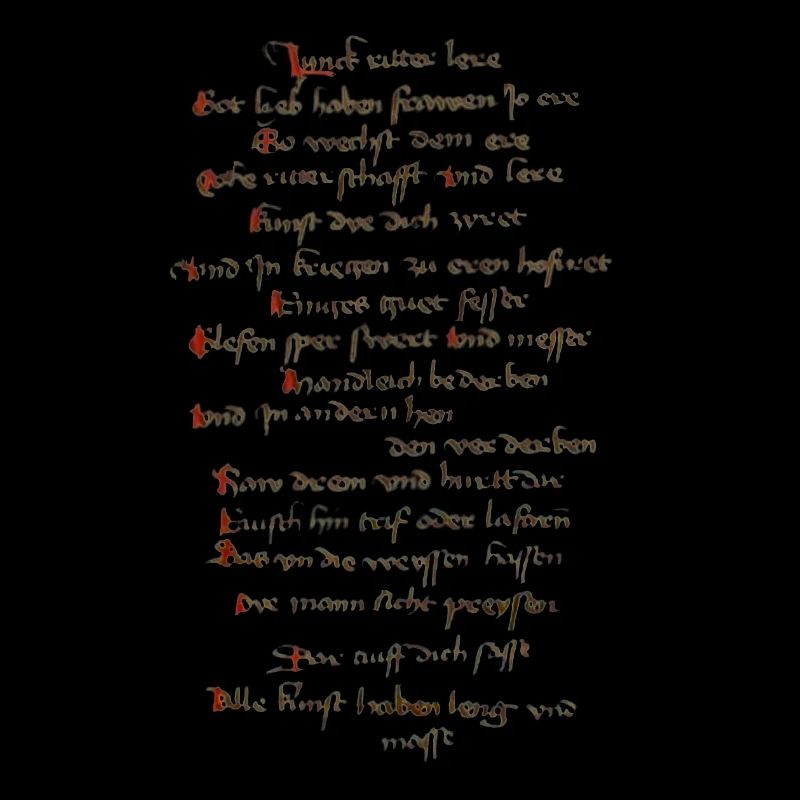 Junck ritter lere
Got lieb haben frawen jo ere
So wechst dein ere
Vbe ritterschafft vnd lere
kunst dye dich zyret
vnd jn kriegen zu eren hofiret
Ringes guet fesser
Glefen sper swert vnd messer
Mandleich bederben
vnd jn andern hen
den verderben
Haw drein vnd hurtt dar
Rausch hin trif oder la farn
Das yn die weyssen hassen
Dye mann sicht preysen
Dar auff dich fasse
Alle kunst haben leng vnd
masse